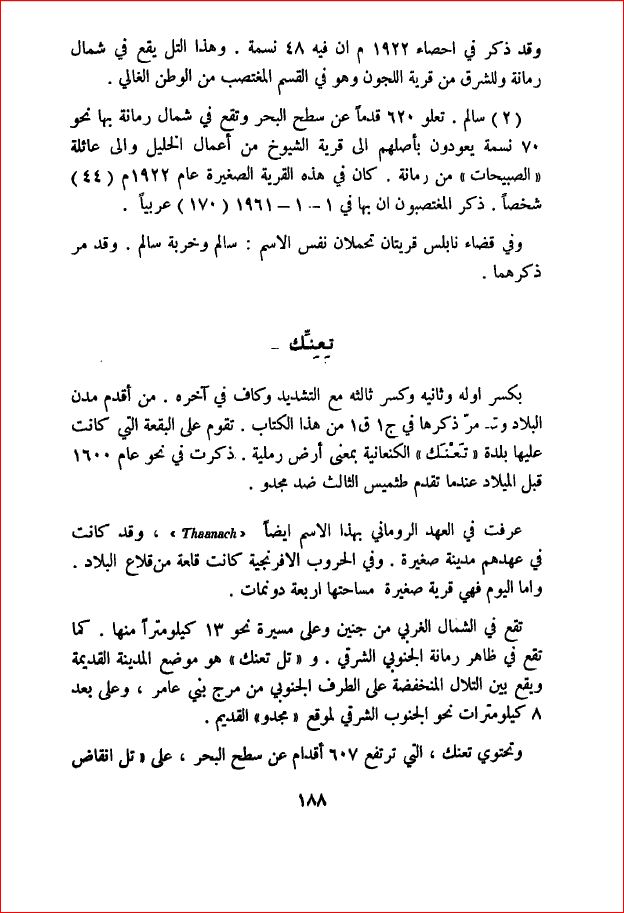 وقد ذكر في احصاء ١٩٢٢ م ان فيه ٤٨ نسمة . وهذا التل يقع في شمال
رمانة وللشرق من قرية اللجون وهو في القسم المغتصب من الوطن الغالي .
( ٢ ) سالم . تعلو ٦٢٠ قدماً عن سطح البحر وتقع في شمال رمانة بها نحو
٧٠ نسمة يعودون بأصلهم الى قرية الشيوخ من أعمال الخليل والى عائلة
« الصبيحات » من رمانة . كان في هذه القرية الصغيرة عام ١٩٢٢م ( ٤٤ )
شخصاً . ذكر المغتصبون ان بها في ١ – ١ – ١٩٦١ ( ١٧٠ ) عربياً .
وفي قضاء نابلس قريتان تحملان نفس الاسم : سالم وخربة سالم . وقد مر
ذكرهما .
تِعِنِّك –
بكسر اوله وثانيه وكسر ثالثه مع التشديد وكاف في آخره . من أقدم مدن
البلاد مرّ ذكرها في ج١ ق١ من هذا الكتاب . تقوم على البقعة التي كانت
عليها بلدة « تَعْنَك » الكنعانية بمعنى أرض رملية . ذكرت في نحو عام ١٦٠٠
قبل الميلاد عندما تقدم طئميس الثالث ضد مجدو .
عرفت في العهد الروماني بهذا الاسم ايضاً « Thaanach » ، وقد كانت
في عهدهم مدينة صغيرة . وفي الحروب الافرنجية كانت قلعة من قلاع البلاد .
واما اليوم فهي قرية صغيرة مساحتها اربعة دونمات .
تقع في الشمال الغربي من جنين وعلى مسيرة نحو ١٣ كيلومتراً منها . كما
تقع في ظاهر رمانة الجنوبي الشرقي . و « تل تعنك » هو موضع المدينة القديمة
ويقع بين التلال المنخفضة على الطرف الجنوبي من مرج بني عامر ، وعلى بعد
٨ كيلومترات نحو الجنوب الشرقي لموقع « مجدو » القديم .
وتحتوي تعنك ، التي ترتفع ٦٠٧ أقدام عن سطح البحر ، على « تل انقاض
١٨٨